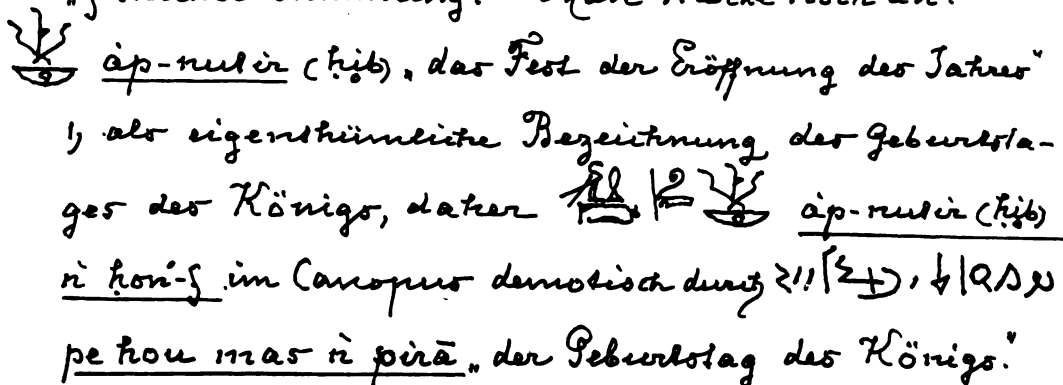 áp-nutir (ḥib) „das Fest der Eröffnung des Jahres“
1, als eigenthümliche Bezeichnung des Geburtsta-
ges des Königs, daher áp-nutir (ḥib)
ǹ ḥon-f im Canopus demotisch durch
pe hou mas ǹ pirā „der Geburtstag des Königs.“